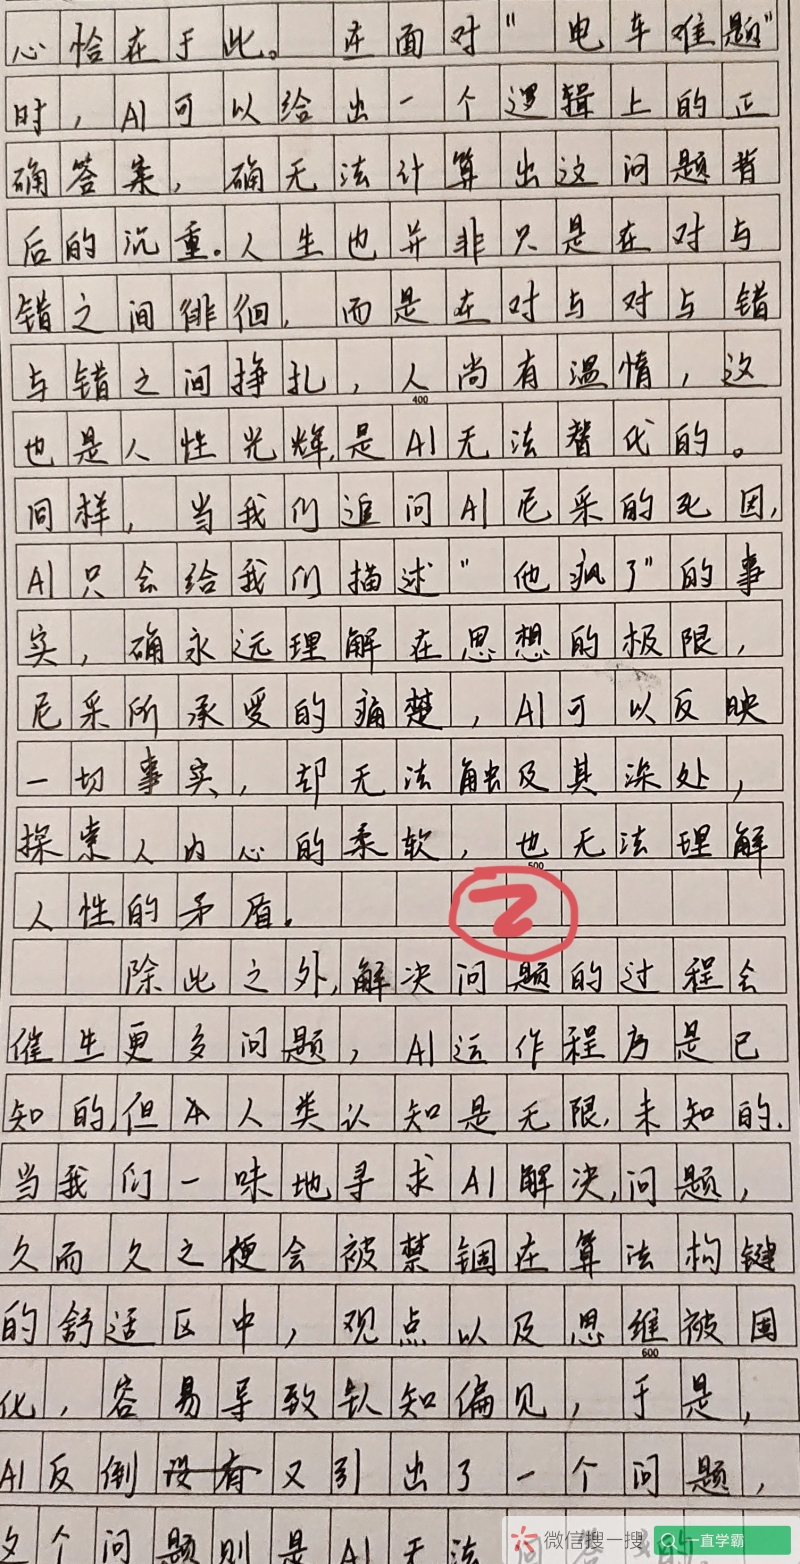 心恰在于此。 在面对"电车难题"
时,AI可以给出一个逻辑上的正
确答案,确无法计算出这问题背
后的沉重。人生也并非只是在对与
错之间徘徊,而是在对与对与错
与错之间挣扎,人尚有温情,这
400
也是人性光辉,是AI无法替代的。
同样,当我们追问AI尼采的死因,
AI只会给我们描述"他疯了"的事
实,确永远理解在思想的极限,
尼采所承受的痛楚,AI可以反映
一切事实,却无法触及其深处,
探索人内心的柔软,也无法理解
500
人性的矛盾。
2
除此之外,解决问题的过程会
催生更多问题,AI运作程序是已
知的,但人类认知是无限,未知的.
当我们一味地寻求AI解决,问题,
久而久之便会被禁锢在算法构键
的舒适区中,观点以及思维被固
600
化,容易导致认知偏见,于是,
AI反倒没有又引出了一个问题,
这个问题则是AI无法
微信搜一搜 一直学霸